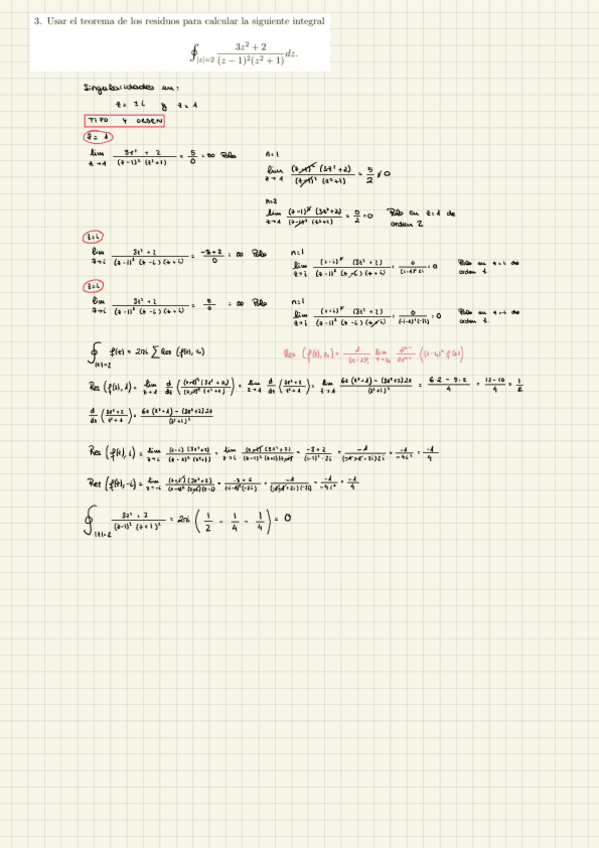 3. Usar el teorema de los residuos para calcular la siguiente integral
∮_{|z|=2} (3z² + 2)/((z − 1)²(z² + 1)) dz.
Singularidades en:
z = ±i y z = 1
TIPO Y ORDEN
z = 1
lim_{z→1} (3z² + 2)/((z−1)² (z²+1)) = 5/0 = ∞ Polo
n=1
lim_{z→1} (3z²+2)/(z²+1) = 5/2 ≠ 0
n=2
= 0/2 = 0 Polo en z=1 de orden 2
z=i
lim_{z→i} (3z² + 2)/((z−1)² (z−i)(z+i)) = (−3+2)/0 = ∞ Polo
n=1
Polo en z=i de orden 1.
z=i
lim_{z→i} (3z² + 2)/((z−1)² (z−i)(z+i)) = = ∞ Polo
n=1
Polo en z=-i de orden 1.
∮_{|z|=2} f(z) = 2πi ∑ Res (f(z), z₀)
Res (f(z), z₀) = 1/(n−1)! lim_{z→z₀} d^{n−1}/dz^{n−1} ((z−z₀)ⁿ f(z))
Res (f(z), 1) = lim_{z→1} d/dz ((z−1)² (3z²+2)/((z−1)² (z²+1))) = lim_{z→1} d/dz ((3z²+2)/(z²+1)) = lim_{z→1} (6z (z²+1) − (3z²+2)2z)/(z²+1)² = (6·2 − 5·2)/4 = (12−10)/4 = 1/2
d/dz ((3z²+2)/(z²+1)) = (6z (z²+1) − (3z²+2)2z)/(z²+1)²
Res (f(z), i) = lim_{z→i} (z−i)(3z²+2)/((z−1)² (z²+1)) = lim_{z→i} (z−i)(3z²+2)/((z−1)² (z+i)(z−i)) = (−3+2)/((i−1)²·2i) = −1/((1−1−2i)2i) = −1/−4i² = −1/4
Res (f(z), −i) = lim_{z→−i} (z+i)(3z²+2)/((z−1)² (z+i)(z−i)) = (−3+2)/((−i−1)²(−2i)) = −1/((1−1+2i)(−2i)) = −1/−4i² = −1/4
∮_{|z|=2} (3z² + 2)/((z−1)² (z+1)²) = 2πi (1/2 − 1/4 − 1/4) = 0